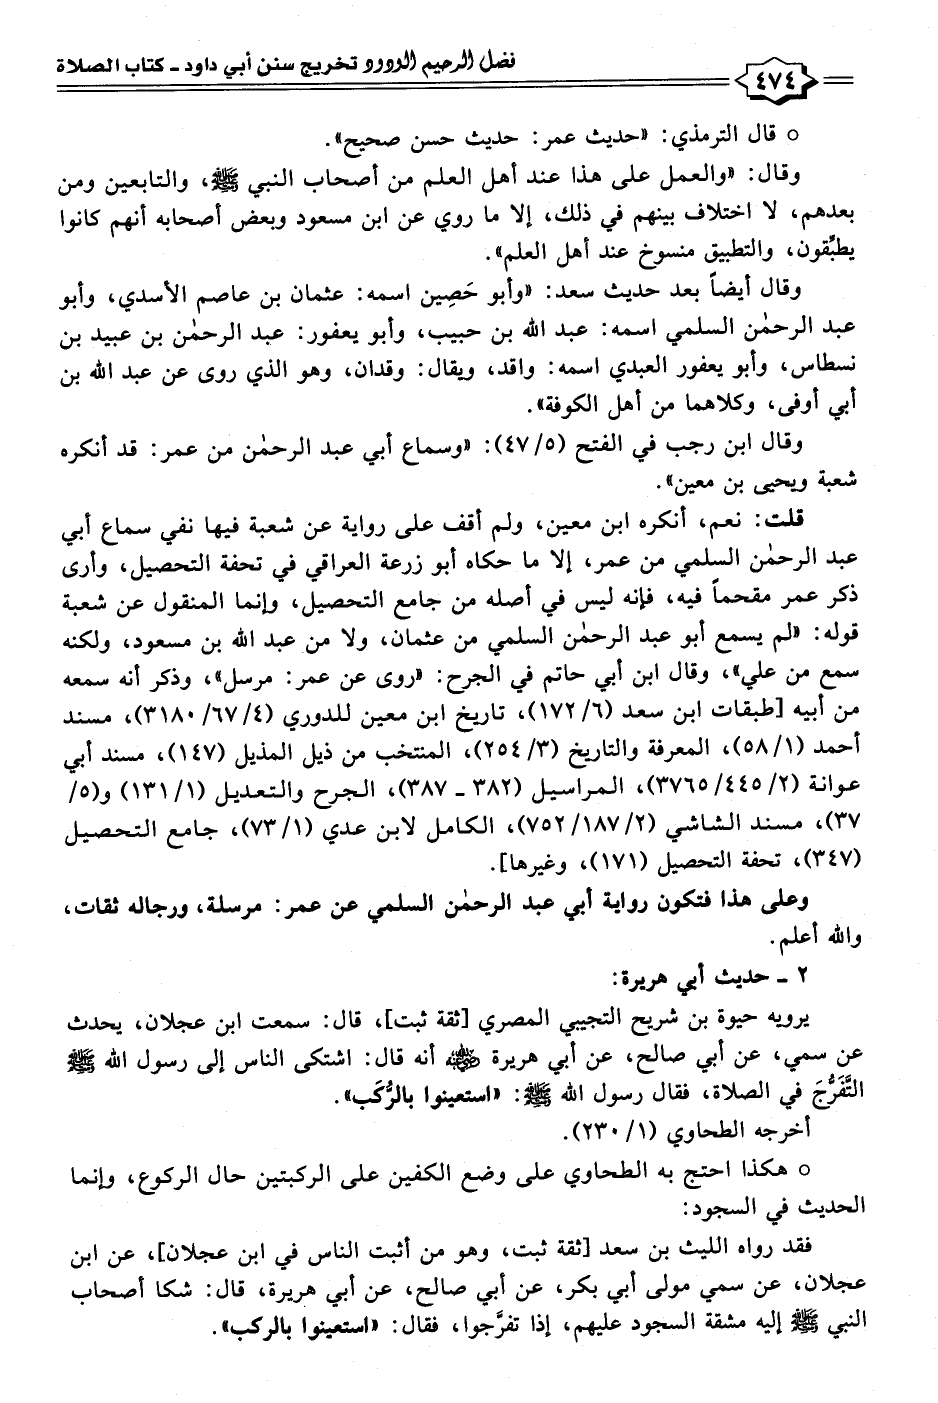 فضل الرحيم الودود تخريج سنن أبي داود ـ كتاب الصلاة
٤٧٤
○ قال الترمذي: «حديث عمر: حديث حسن صحيح».
وقال: «والعمل على هذا عند أهل العلم من أصحاب النبي ﷺ، والتابعين ومن
بعدهم، لا اختلاف بينهم في ذلك، إلا ما روي عن ابن مسعود وبعض أصحابه أنهم كانوا
يطبِّقون، والتطبيق منسوخ عند أهل العلم».
وقال أيضاً بعد حديث سعد: «وأبو حَصِين اسمه: عثمان بن عاصم الأسدي، وأبو
عبد الرحمٰن السلمي اسمه: عبد الله بن حبيب، وأبو يعفور: عبد الرحمٰن بن عبيد بن
نسطاس، وأبو يعفور العبدي اسمه: واقد، ويقال: وقدان، وهو الذي روى عن عبد الله بن
أبي أوفى، وكلاهما من أهل الكوفة».
وقال ابن رجب في الفتح (٥/ ٤٧): «وسماع أبي عبد الرحمٰن من عمر: قد أنكره
شعبة ويحيى بن معين».
قلت: نعم، أنكره ابن معين، ولم أقف على رواية عن شعبة فيها نفي سماع أبي
عبد الرحمٰن السلمي من عمر، إلا ما حكاه أبو زرعة العراقي في تحفة التحصيل، وأرى
ذكر عمر مقحماً فيه، فإنه ليس في أصله من جامع التحصيل، وإنما المنقول عن شعبة
قوله: «لم يسمع أبو عبد الرحمٰن السلمي من عثمان، ولا من عبد الله بن مسعود، ولكنه
سمع من علي»، وقال ابن أبي حاتم في الجرح: «روى عن عمر: مرسل»، وذكر أنه سمعه
من أبيه [طبقات ابن سعد (٦/ ١٧٢)، تاريخ ابن معين للدوري (٤/ ٦٧/ ٣١٨٠)، مسند
أحمد (١/ ٥٨)، المعرفة والتاريخ (٣/ ٢٥٤)، المنتخب من ذيل المذيل (١٤٧)، مسند أبي
عوانة (٢/ ٤٤٥/ ٣٧٦٥)، المراسيل (٣٨٢ ـ ٣٨٧)، الجرح والتعديل (١/ ١٣١) و(٥/
٣٧)، مسند الشاشي (٢/ ١٨٧/ ٧٥٢)، الكامل لابن عدي (١/ ٧٣)، جامع التحصيل
(٣٤٧)، تحفة التحصيل (١٧١)، وغيرها].
وعلى هذا فتكون رواية أبي عبد الرحمٰن السلمي عن عمر: مرسلة، ورجاله ثقات،
والله أعلم.
٢ ـ حديث أبي هريرة:
يرويه حيوة بن شريح التجيبي المصري [ثقة ثبت]، قال: سمعت ابن عجلان، يحدث
عن سمي، عن أبي صالح، عن أبي هريرة ﷺ أنه قال: اشتكى الناس إلى رسول الله ﷺ
التَّفَرُّجَ في الصلاة، فقال رسول الله ﷺ: «استعينوا بالرُّكَب».
أخرجه الطحاوي (١/ ٢٣٠).
○ هكذا احتج به الطحاوي على وضع الكفين على الركبتين حال الركوع، وإنما
الحديث في السجود:
فقد رواه الليث بن سعد [ثقة ثبت، وهو من أثبت الناس في ابن عجلان]، عن ابن
عجلان، عن سمي مولى أبي بكر، عن أبي صالح، عن أبي هريرة، قال: شكا أصحاب
النبي ﷺ إليه مشقة السجود عليهم، إذا تفرَّجوا، فقال: «استعينوا بالركب».